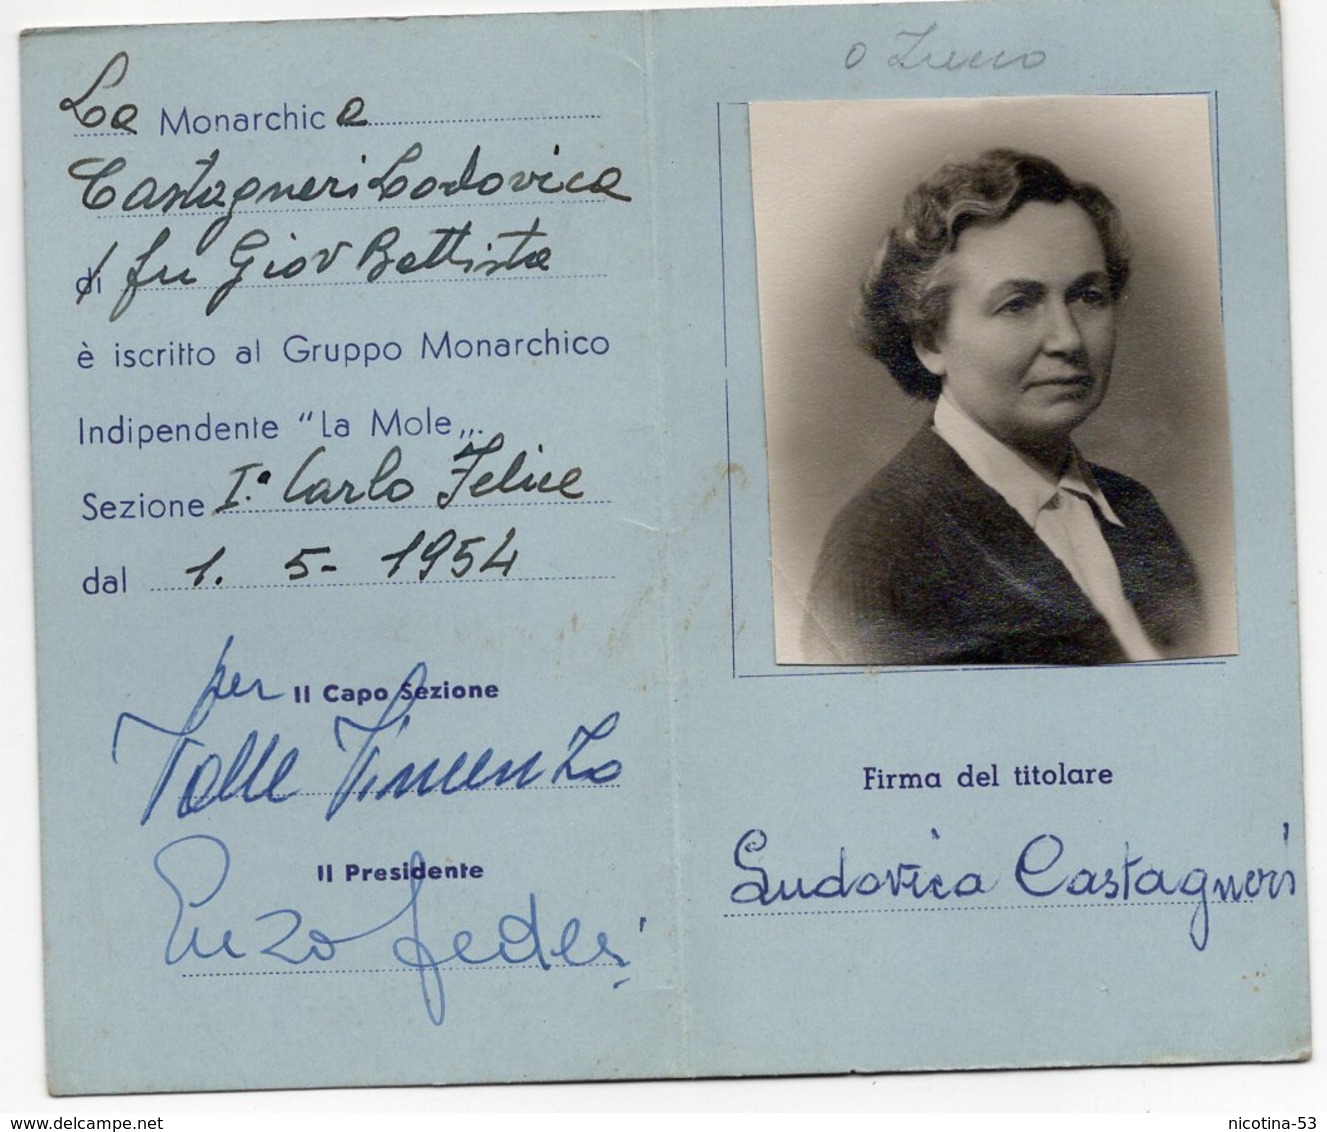 La Monarchica
Castagneri Lodovica
di fu Giov Battista
è iscritto al Gruppo Monarchico
Indipendente "La Mole„.
Sezione I.a Carlo Felice
dal 1. 5- 1954
per Il Capo Sezione
Valle Vincenzo
Il Presidente
Enzo
Firma del titolare
Ludovica Castagneri
nicotina-53